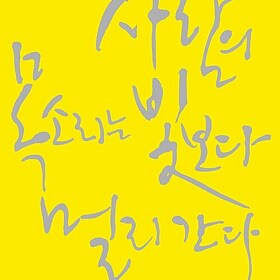 사람의
목소리는 빛보다
멀리 간다